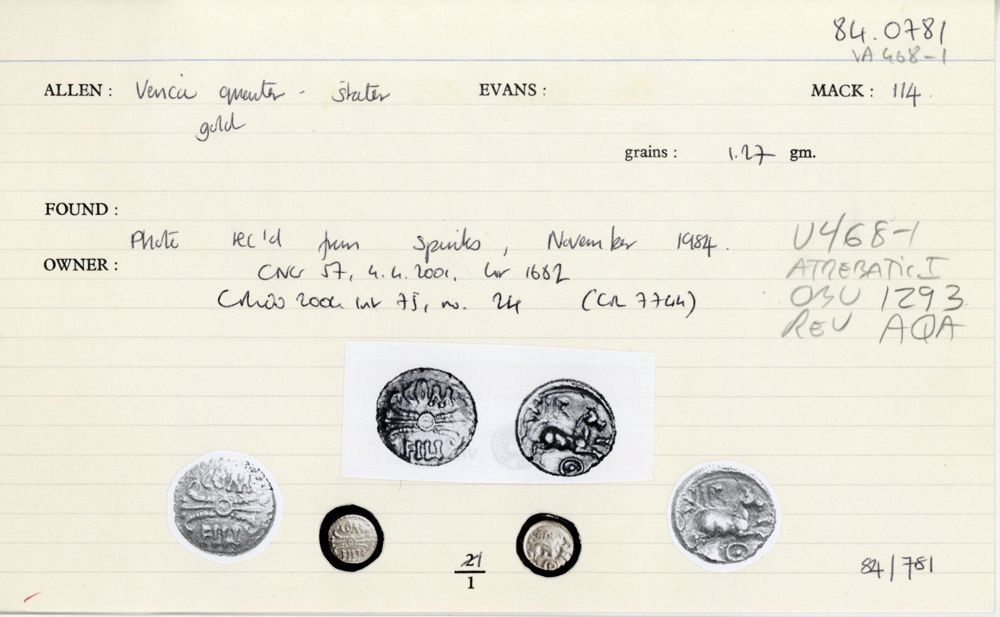 84.0781
VA 468-1
ALLEN : Verica quarter - stater EVANS : MACK : 114.
gold
grains : 1.27 gm.
FOUND :
Photo rec'd from Spinks, November 1984.
OWNER :
CNG 57, 4.4.2001, lot 1682
2004 75, no. 24 (CR 7744)
V468-1
ATREBATIC I
OBV 1293
REV AQA
COM
FILI
VIR
COM
FILI
VIR
COM
FILI
21
1
84/781